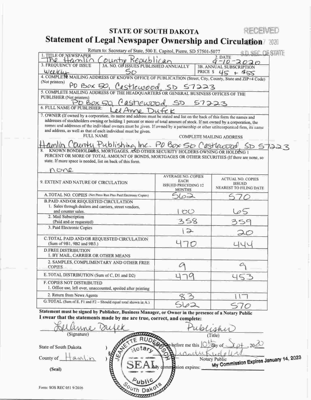 STATE OF SOUTH DAKOTA
RECEIVED
Statement of Legal Newspaper Ownership and Circulation
Return to: Secretary of State, 500 E. Capitol, Pierre, SD 57501-5077
S.D. SEC. OF STATE
1. TITLE OF NEWSPAPER
2. DATE
The Hamlin County Republican
9-18-2020
3. FREQUENCY OF ISSUE
3A. NO. OF ISSUES PUBLISHED ANNUALLY
3B. ANNUAL SUBSCRIPTION
weekly
50
PRICE $ 45 + $55
4. COMPLETE MAILING ADDRESS OF KNOWN OFFICE OF PUBLICATION (Street, City, County, State and ZIP+4 Code)
(Not printers)
PO Box 50, Castlewood SD 57223
5. COMPLETE MAILING ADDRESS OF THE HEADQUARTERS OR GENERAL BUSINESS OFFICES OF THE
PUBLISHER (Not printers)
PO Box 50, Castlewood SD 57223
6. FULL NAME OF PUBLISHER:
LeeAnne Dufek
7. OWNER (If owned by a corporation, its name and address must be stated and on the back of this form the names and
addresses of stockholders owning or holding 1 percent or more of total amount of stock. If not owned by a corporation, the
names and addresses of the individual owners must be given. If owned by a partnership or other unincorporated firm, its name
and address, as well as that of each individual must be given).
FULL NAME
COMPLETE MAILING ADDRESS
Hamlin County Publishing, Inc. PO Box 50 Castlewood SD 57223
8. KNOWN BONDHOLDERS, MORTGAGEE, AND OTHER SECURITY HOLDERS OWNING OR HOLDING 1
PERCENT OR MORE OF TOTAL AMOUNT OF BONDS, MORTGAGES OR OTHER SECURITIES (If there are none, so
state. If more space is needed, list on back of this form).
none
9. EXTENT AND NATURE OF CIRCULATION
AVERAGE NO. COPIES
EACH
ISSUED PRECEDING 12
MONTHS
ACTUAL NO. COPIES
ISSUED
NEAREST TO FILING DATE
A. TOTAL NO. COPIES
562
570
B. PAID AND/OR REQUESTED CIRCULATION
1. Sales through dealers and carriers, street vendors,
and counter sales.
100
65
2. Mail Subscription
(Paid and or requested)
358
359
3. Paid Electronic Copies
12
20
C. TOTAL PAID AND OR REQUESTED CIRCULATION
(Sum of 9B1, 9B2 and 9B3.)
470
444
D. FREE DISTRIBUTION
1. BY MAIL, CARRIER OR OTHER MEANS
2. SAMPLES, COMPLIMENTARY AND OTHER FREE
COPIES
9
9
E. TOTAL DISTRIBUTION (Sum of C, D1 and D2)
479
453
F. COPIES NOT DISTRIBUTED
1. Office use, left over, unaccounted, spoiled after printing
2. Return from News Agents
83
117
G. TOTAL (Sum of E, F1 and F2 - Should equal total shown in A.)
562
570
Statement must be signed by Publisher, Business Manager, or Owner in the presence of a Notary Public
I swear that the statements made by me are true, correct, and complete:
LeeAnne Dufek
Publisher
(Signature)
(Title)
State of South Dakota
County of Hamlin
(Seal)
Notary Public
SEAL
South Dakota
My Commission Expires January 14, 2020